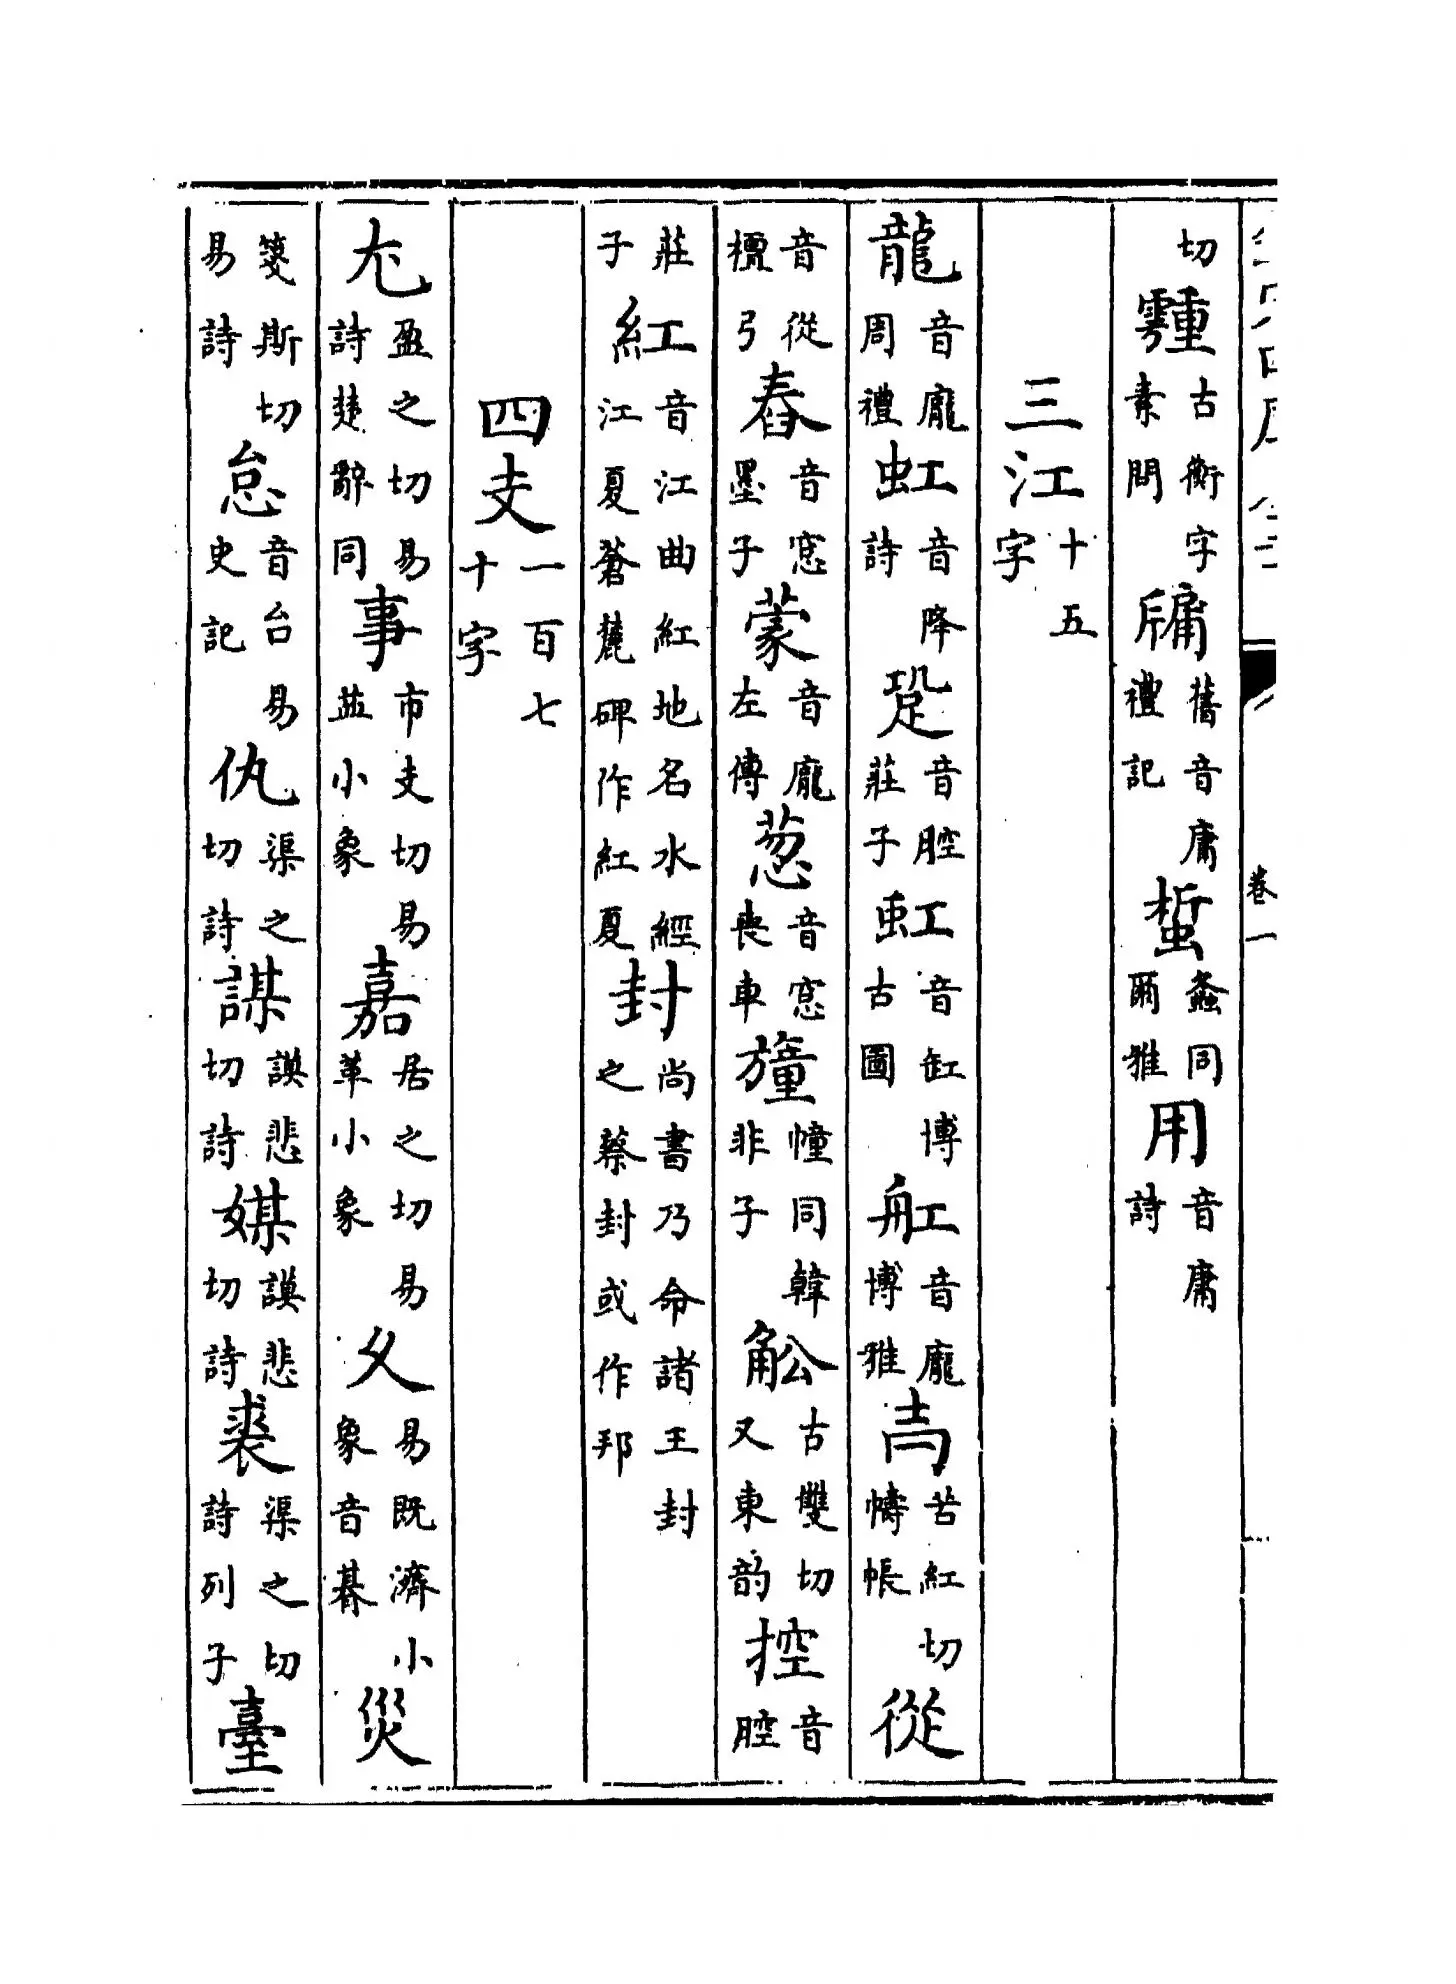 卷一
切 古衝字素問牅舊音庸禮記蜤螽同爾雅用音庸詩
三江十五字
龍音龐周禮虹音降詩跫音腔莊子虹音缸博古圖舡音龐博雅 苦紅切幬帳從
音從檀弓舂音窓墨子蒙音龐左傳葱音窓喪車 幢同韓非子䚗古雙切又東韵控音腔
莊子紅音江曲紅地名水經江夏蒼麓碑作紅夏封尚書乃命諸王封之蔡封或作邦
四支一百七十字
尤盈之切易詩楚辭同事市支切易並小象嘉居之切易革小象久易既濟小象音朞災
箋斯切易詩怠音台易史記仇渠之切詩謀謨悲切詩媒謨悲切詩裘渠之切詩列子臺